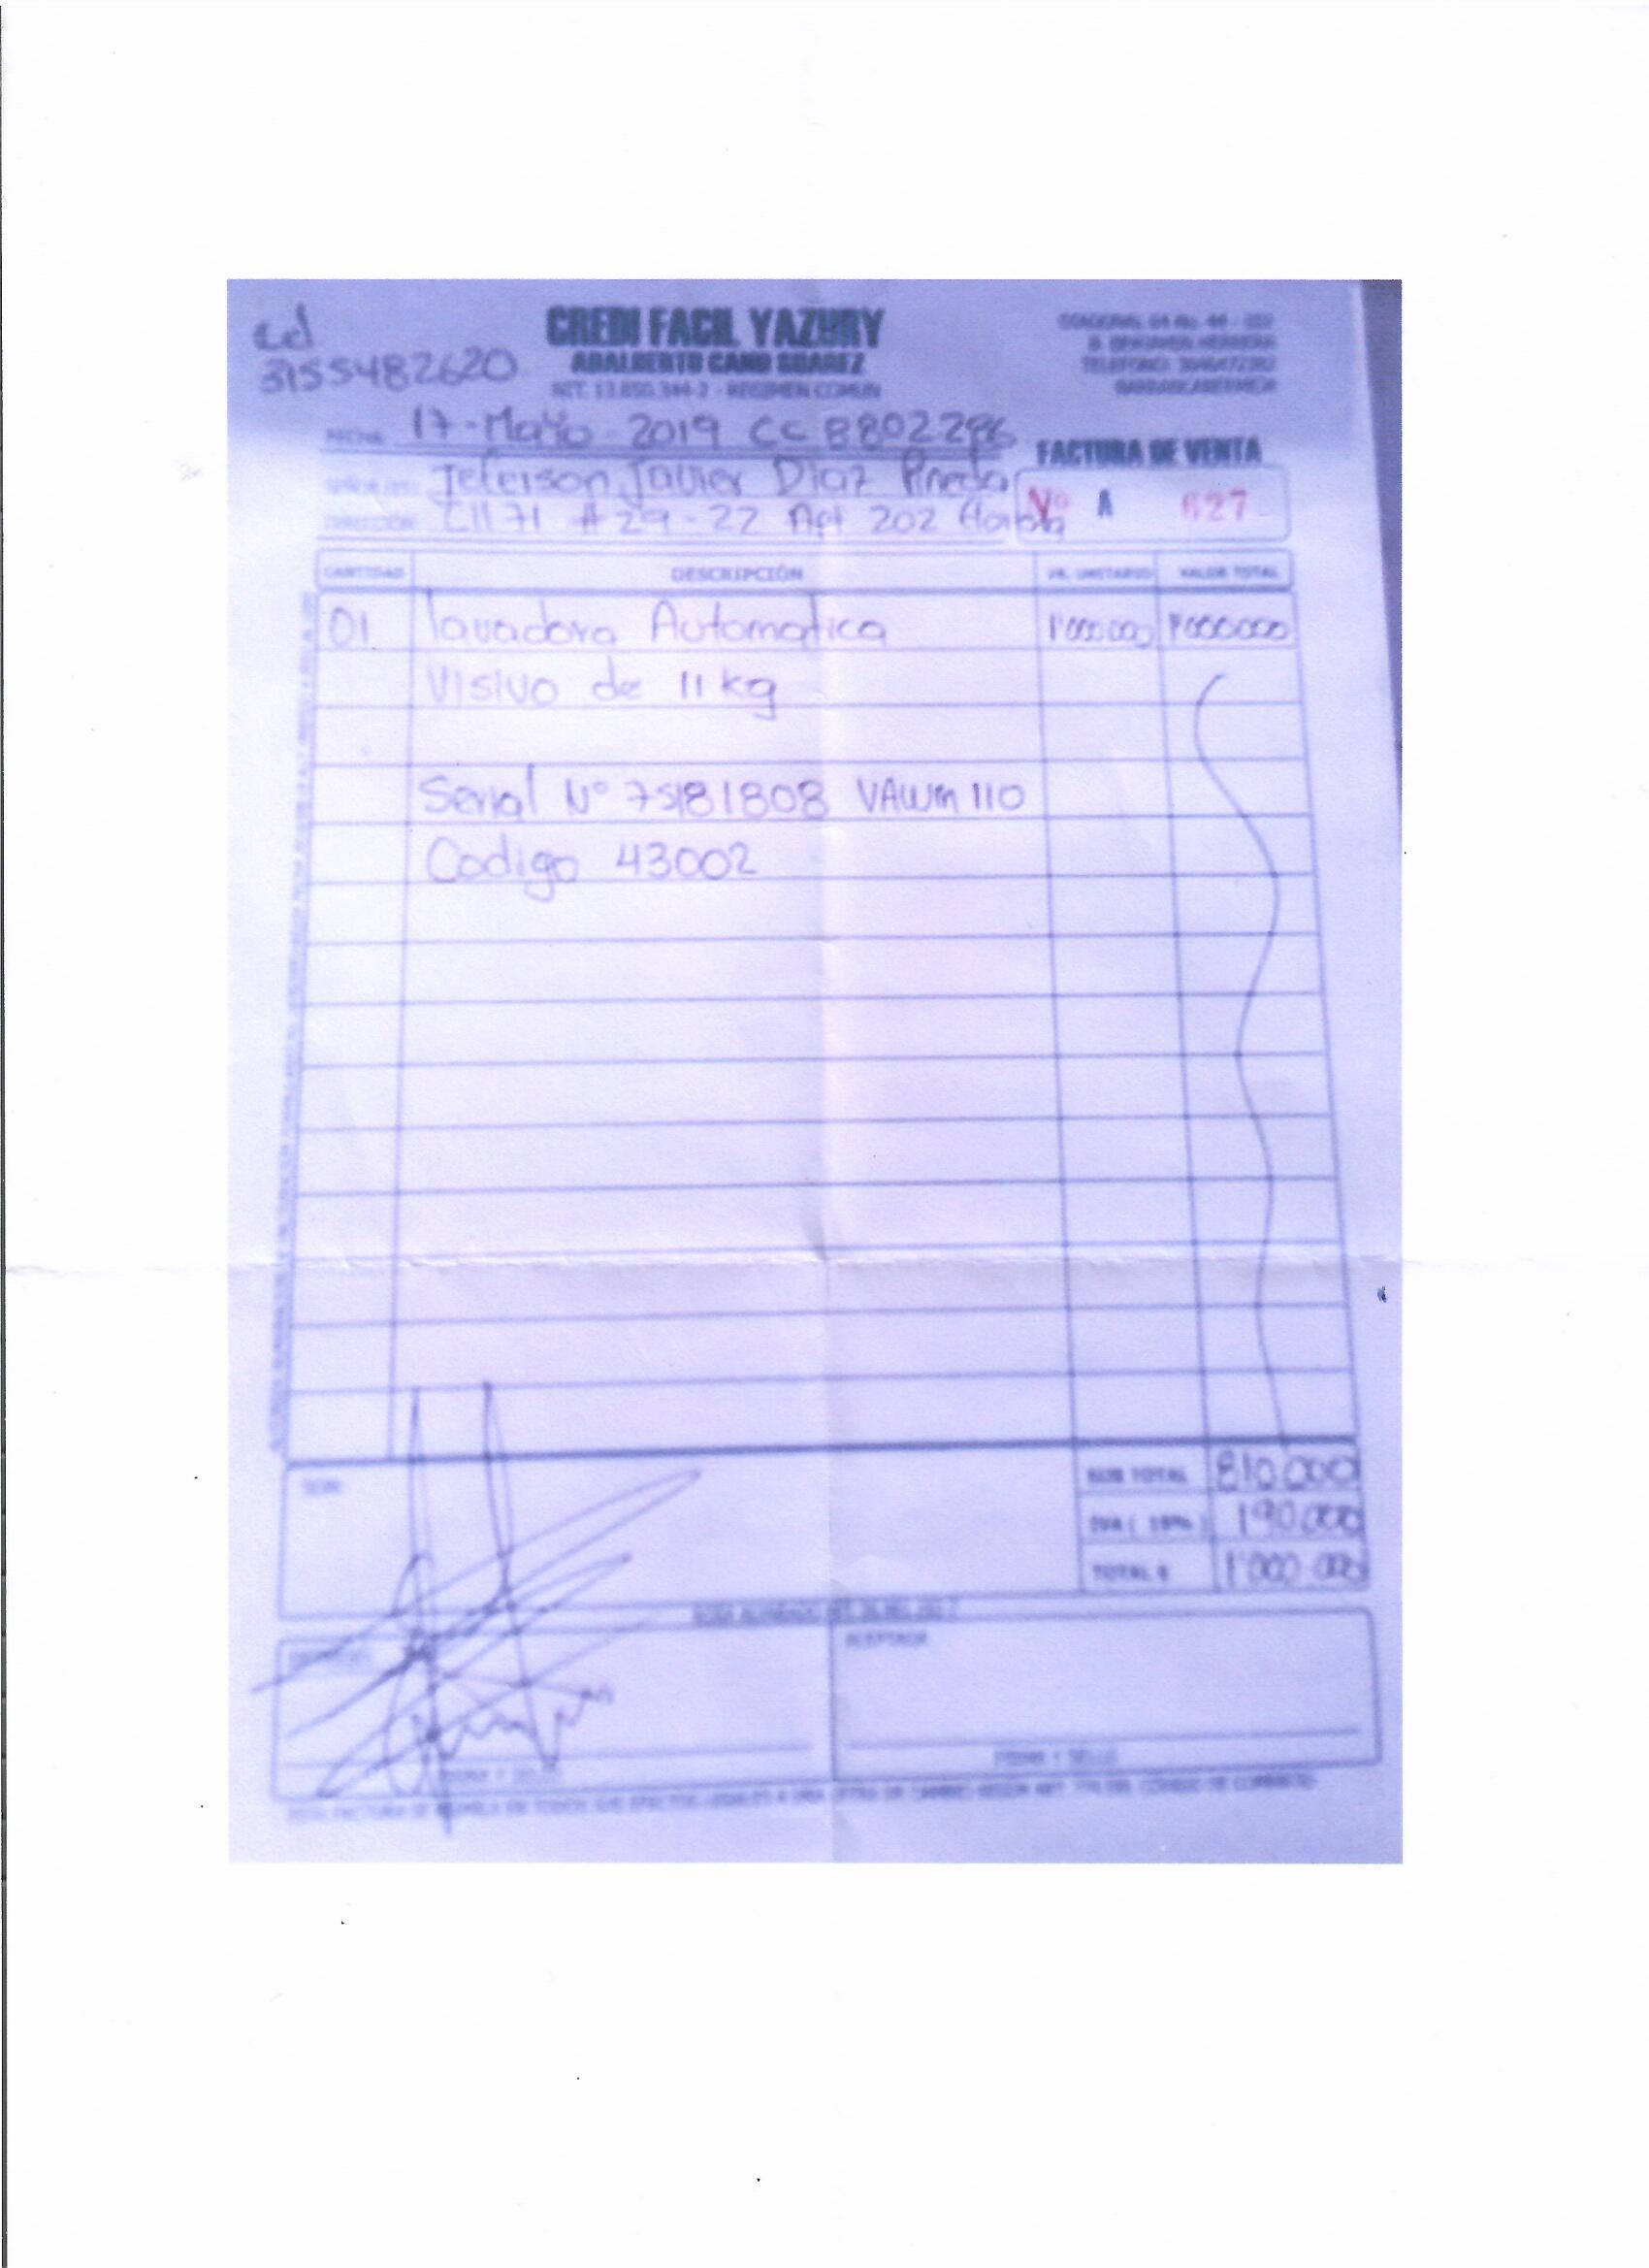 cel
3155482620
CREDI FACIL YAZURY
ADALBERTO CANO SUAREZ
NIT. 13.850.344-2 - REGIMEN COMUN
BARRANCABERMEJA
FECHA 17-Mayo-2019 CC 8802296
FACTURA DE VENTA
SEÑOR (ES) Jeferson Javier Diaz Pineda
Nº A 627
DIRECCIÓN Cll 71 # 29-22 Apt 202
CANTIDAD DESCRIPCIÓN VR. UNITARIO VALOR TOTAL
01 lavadora Automatica 1'000.000 1'000.000
Visivo de 11 kg
Serial Nº 75181808 VAWM 110
Codigo 43002
SON:
SUB TOTAL 810.000
IVA ( 19% ) 190.000
TOTAL $ 1'000.000
ACEPTADA
FIRMA Y SELLO
FIRMA Y SELLO
ESTA FACTURA SE ASIMILA EN TODOS SUS EFECTOS LEGALES A UNA LETRA DE CAMBIO SEGÚN ART. 774 DEL CÓDIGO DE COMERCIO